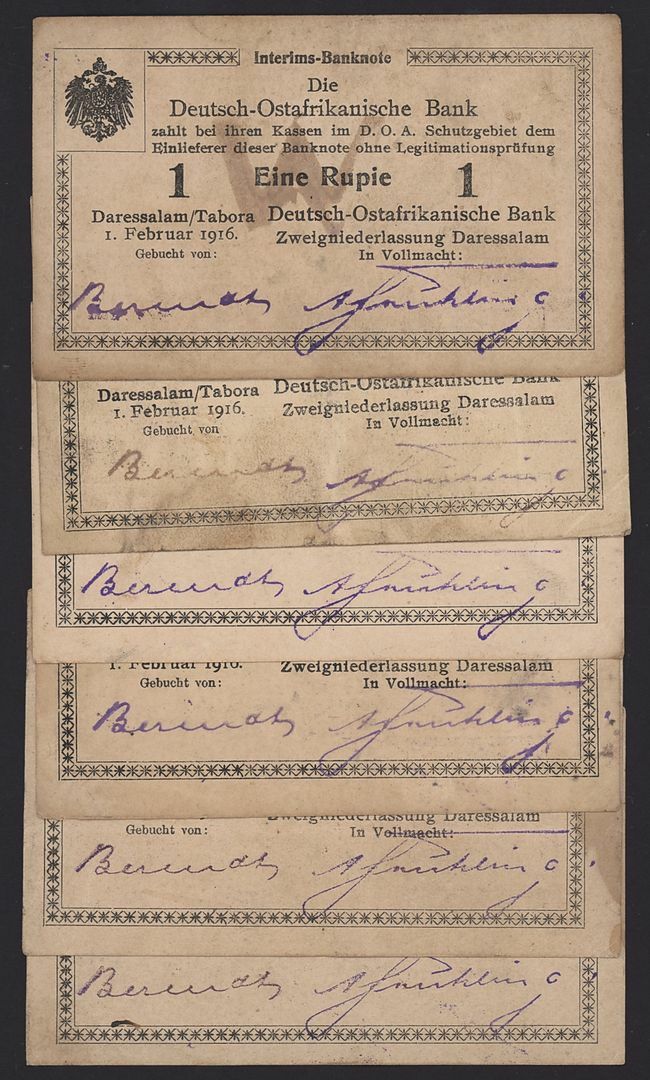 Interims-Banknote
Die
Deutsch-Ostafrikanische Bank
zahlt bei ihren Kassen im D. O. A. Schutzgebiet dem
Einlieferer dieser Banknote ohne Legitimationsprüfung
1 Eine Rupie 1
Daressalam/Tabora Deutsch-Ostafrikanische Bank
1. Februar 1916. Zweigniederlassung Daressalam
Gebucht von: In Vollmacht:
Berendt
Daressalam/Tabora Deutsch-Ostafrikanische Bank
1. Februar 1916. Zweigniederlassung Daressalam
Gebucht von In Vollmacht:
Berendt
Berendt
1. Februar 1916. Zweigniederlassung Daressalam
Gebucht von: In Vollmacht:
Berendt
Zweigniederlassung Daressalam
Gebucht von: In Vollmacht:
Berendt
Berendt